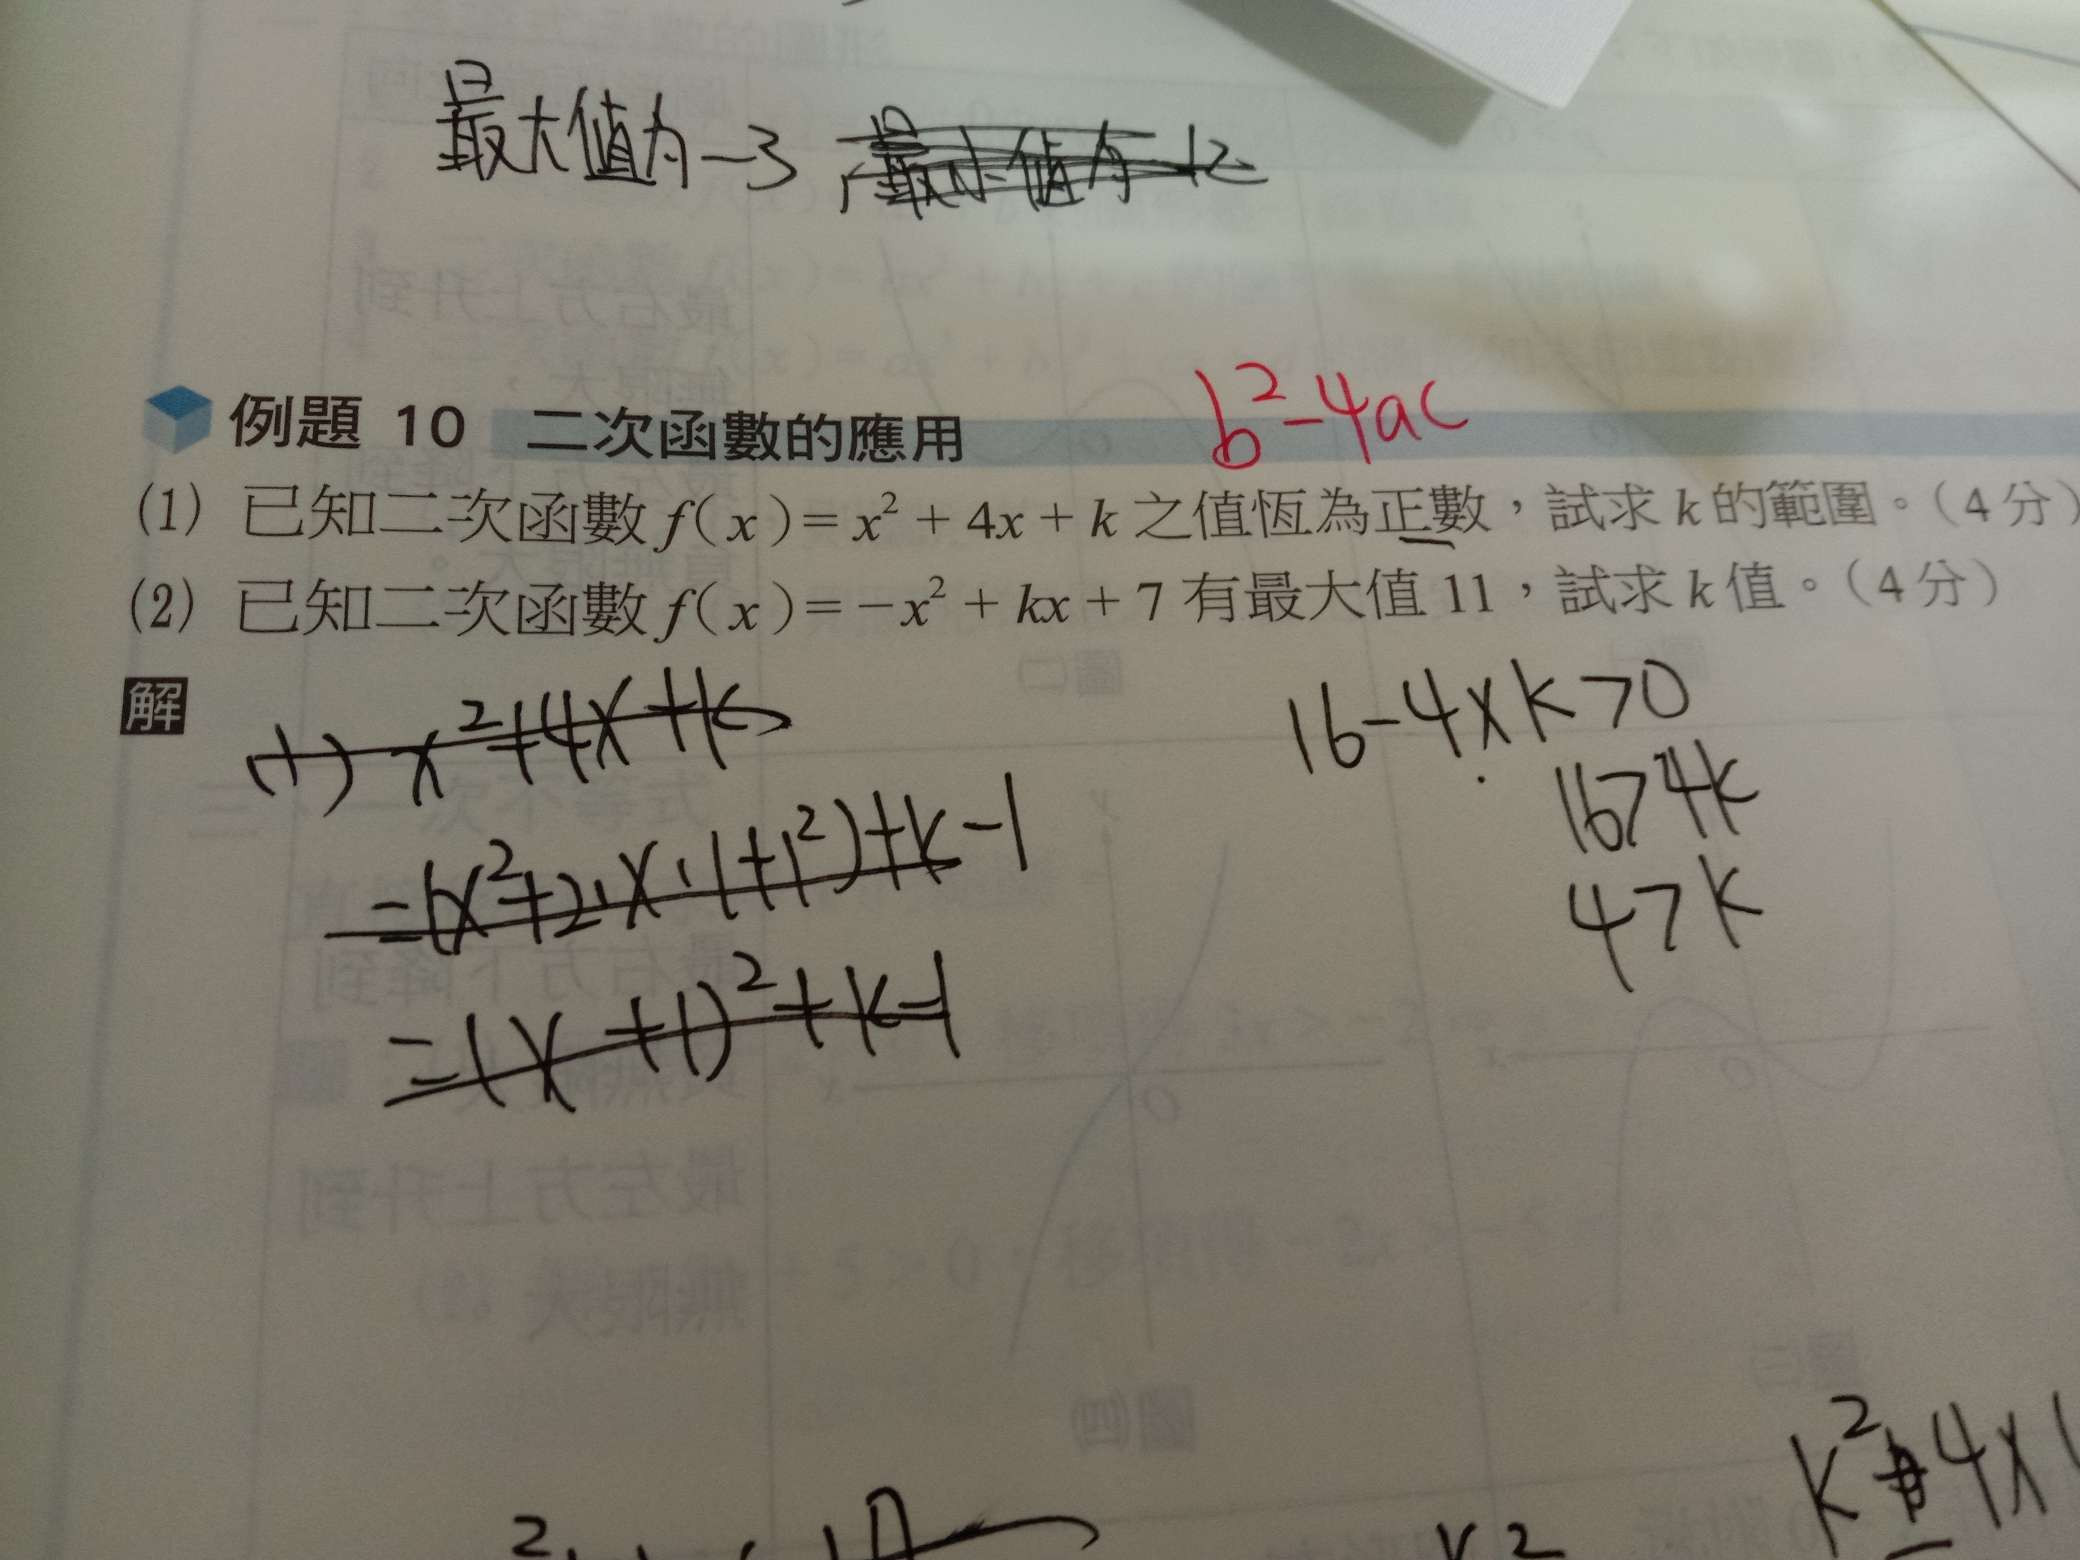 最大值为-3 最小值为-12
例題 10 二次函數的應用 b²-4ac
(1) 已知二次函數 f(x)=x²+4x+k 之值恆為正數，試求 k 的範圍。(4分)
(2) 已知二次函數 f(x)=-x²+kx+7 有最大值 11，試求 k 值。(4分)
解
(1) x²+4x+k
=(x²+2·x·1+1²)+k-1
=(x+1)²+k-1
16-4×k>0
16>4k
4>k